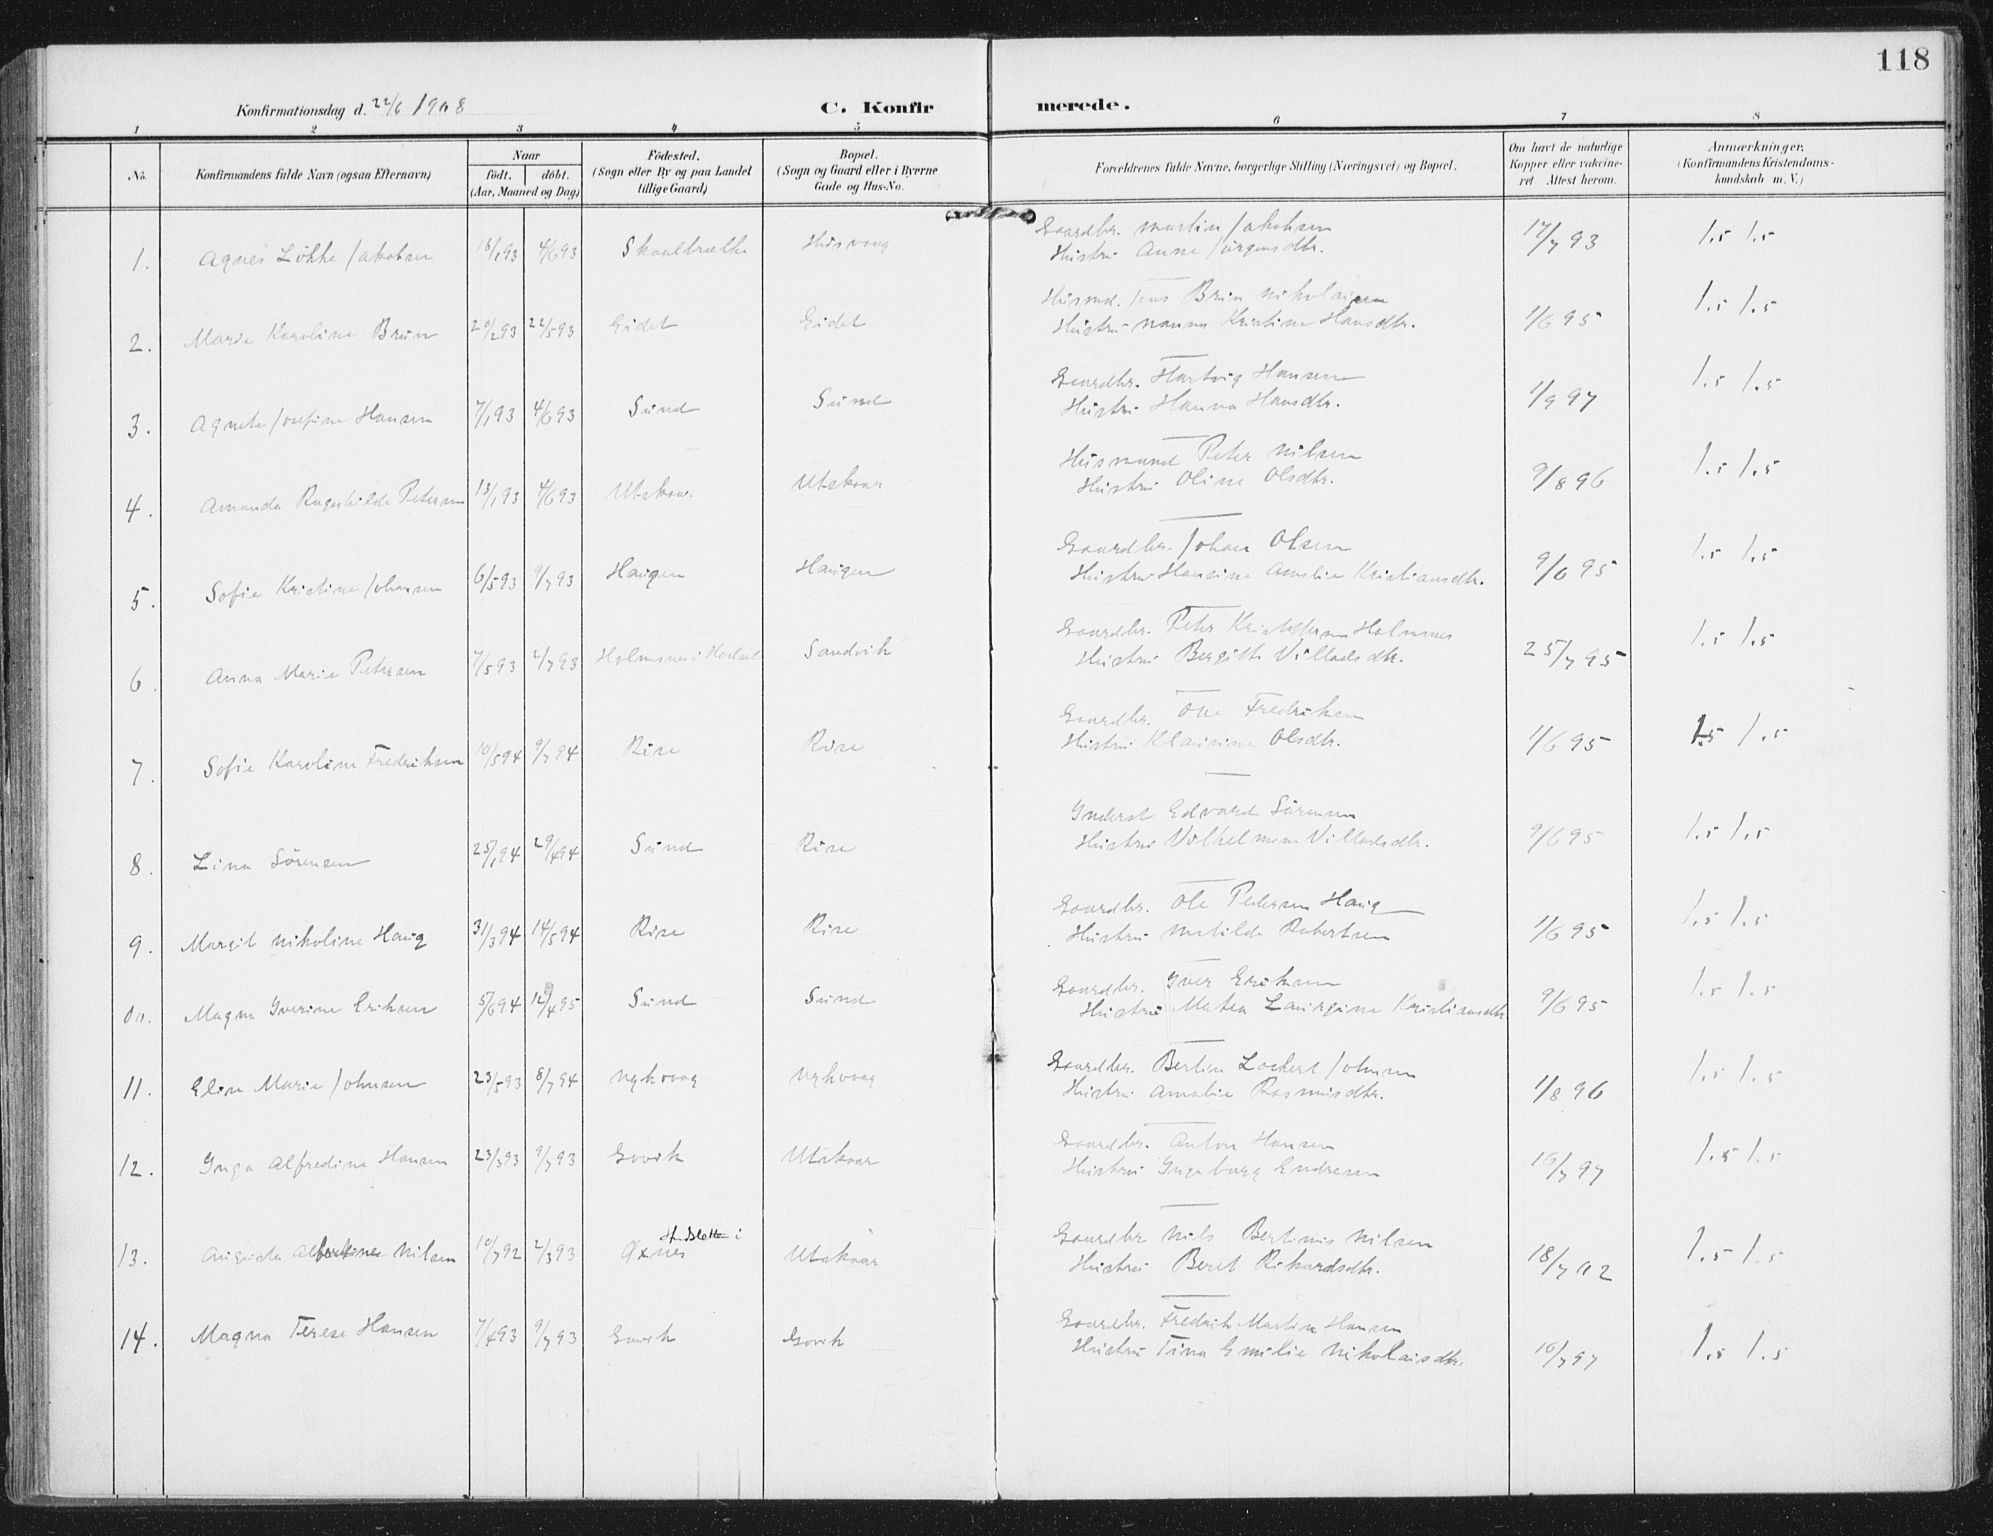 118
Konfirmationsdag d. 22/6 1908
C. Konfirmerede.
1 2 3 4 5 6 7 8
No.
Konfirmandens fulde Navn (ogsaa Efternavn)
Naar
födt. döbt.
(Aar, Maaned og Dag)
Födested.
(Sogn eller By og paa Landet
tillige Gaard)
Bopæl.
(Sogn og Gaard eller i Byerne
Gade og Hus-No.
Forældrenes fulde Navne, borgerlige Stilling (Næringsvei) og Bopæl.
Om havt de naturlige
Kopper eller vakcine-
ret Attest herom.
Anmærkninger.
(Konfirmandens Kristendoms-
kundskab m. V.)
Gaardbr. Martin Jakobsen
1. Agnes Løkke Jakobsen 4/6 93 17/7 93 1.5 1.5
Hustru Anne Jörgensdtr.
Husmd. Jens Brun Nikolaisen
2. Marie Karoline Brun 20/2 93 22/5 93 Eidet Eidet 1/6 95 1.5 1.5
Hustru Nanna Kristine Hansdtr.
Gaardbr. Hartvig Hansen
3. Agnete Josefine Hansen 7/1 93 4/6 93 Sund Sund 1/9 97 1.5 1.5
Hustru Hanna Hansdtr.
Husmand Peter Nilsen
4. Amanda Ragnhilda Petersen 13/1 93 4/6 93 Utskaar Utskaar 9/8 96 1.5 1.5
Hustru Oline Olsdtr.
Gaardbr. Johan Olsen
5. Sofie Kristine Johansen 6/5 93 9/7 93 Haugen Haugen 9/6 95 1.5 1.5
Hustru Hansine Amalie Kristiansdtr.
Gaardbr. Peter Kristoffersen Holmsnes
6. Anna Marie Petersen 7/5 93 2/7 93 Holmsnes i Sandvik 25/7 95 1.5 1.5
Hustru Bergith Villadsdtr.
Gaardbr. Ole Fredriksen
7. Sofie Karoline Fredriksen 10/5 94 9/7 94 Rise Rise 1/6 95 1.5 1.5
Hustru Klausine Olsdtr.
Inderst Edvard Sörensen
8. Lina Sörensen 25/1 94 29/4 94 Sund Rise 9/6 95 1.5 1.5
Hustru Vilhelmine Villadsdtr.
Gaardbr. Ole Pedersen Haug
9. Margit Nikoline Haug 31/3 94 14/5 94 Rise Rise 1/6 95 1.5 1.5
Hustru Matilde Robertsen
Gaardbr. Iver Eriksen
Magna Iverine Eriksen 5/6 94 12/4 95 Sund Sund 9/6 95 1.5 1.5
Hustru Matea Laurgine Kristiansdtr.
Gaardbr. Bertin Lockert Johnsen
11. Elise Marie Johnsen 23/5 93 8/7 94 Nykvaag Nykvaag 1/8 96 1.5 1.5
Hustru Amalie Rasmusdtr.
Gaardbr. Anton Hansen
12. Inga Alfredine Hansen 23/3 93 9/7 93 Govik Utskaar 16/7 97 1.5 1.5
Hustru Ingeborg Endresen
Gaardbr. Nils Bertinus Nilsen
13. Augusta Albertine Nilsen 10/7 92 2/3 93 Øxnes Utskaar 18/7 02 1.5 1.5
Hustru Beret Rikardsdtr.
Gaardbr. Fredrik Martin Hansen
14. Magna Terese Hansen 7/4 93 9/7 93 Govik Govik 16/7 97 1.5 1.5
Hustru Tina Emilie Nikolaisdtr.